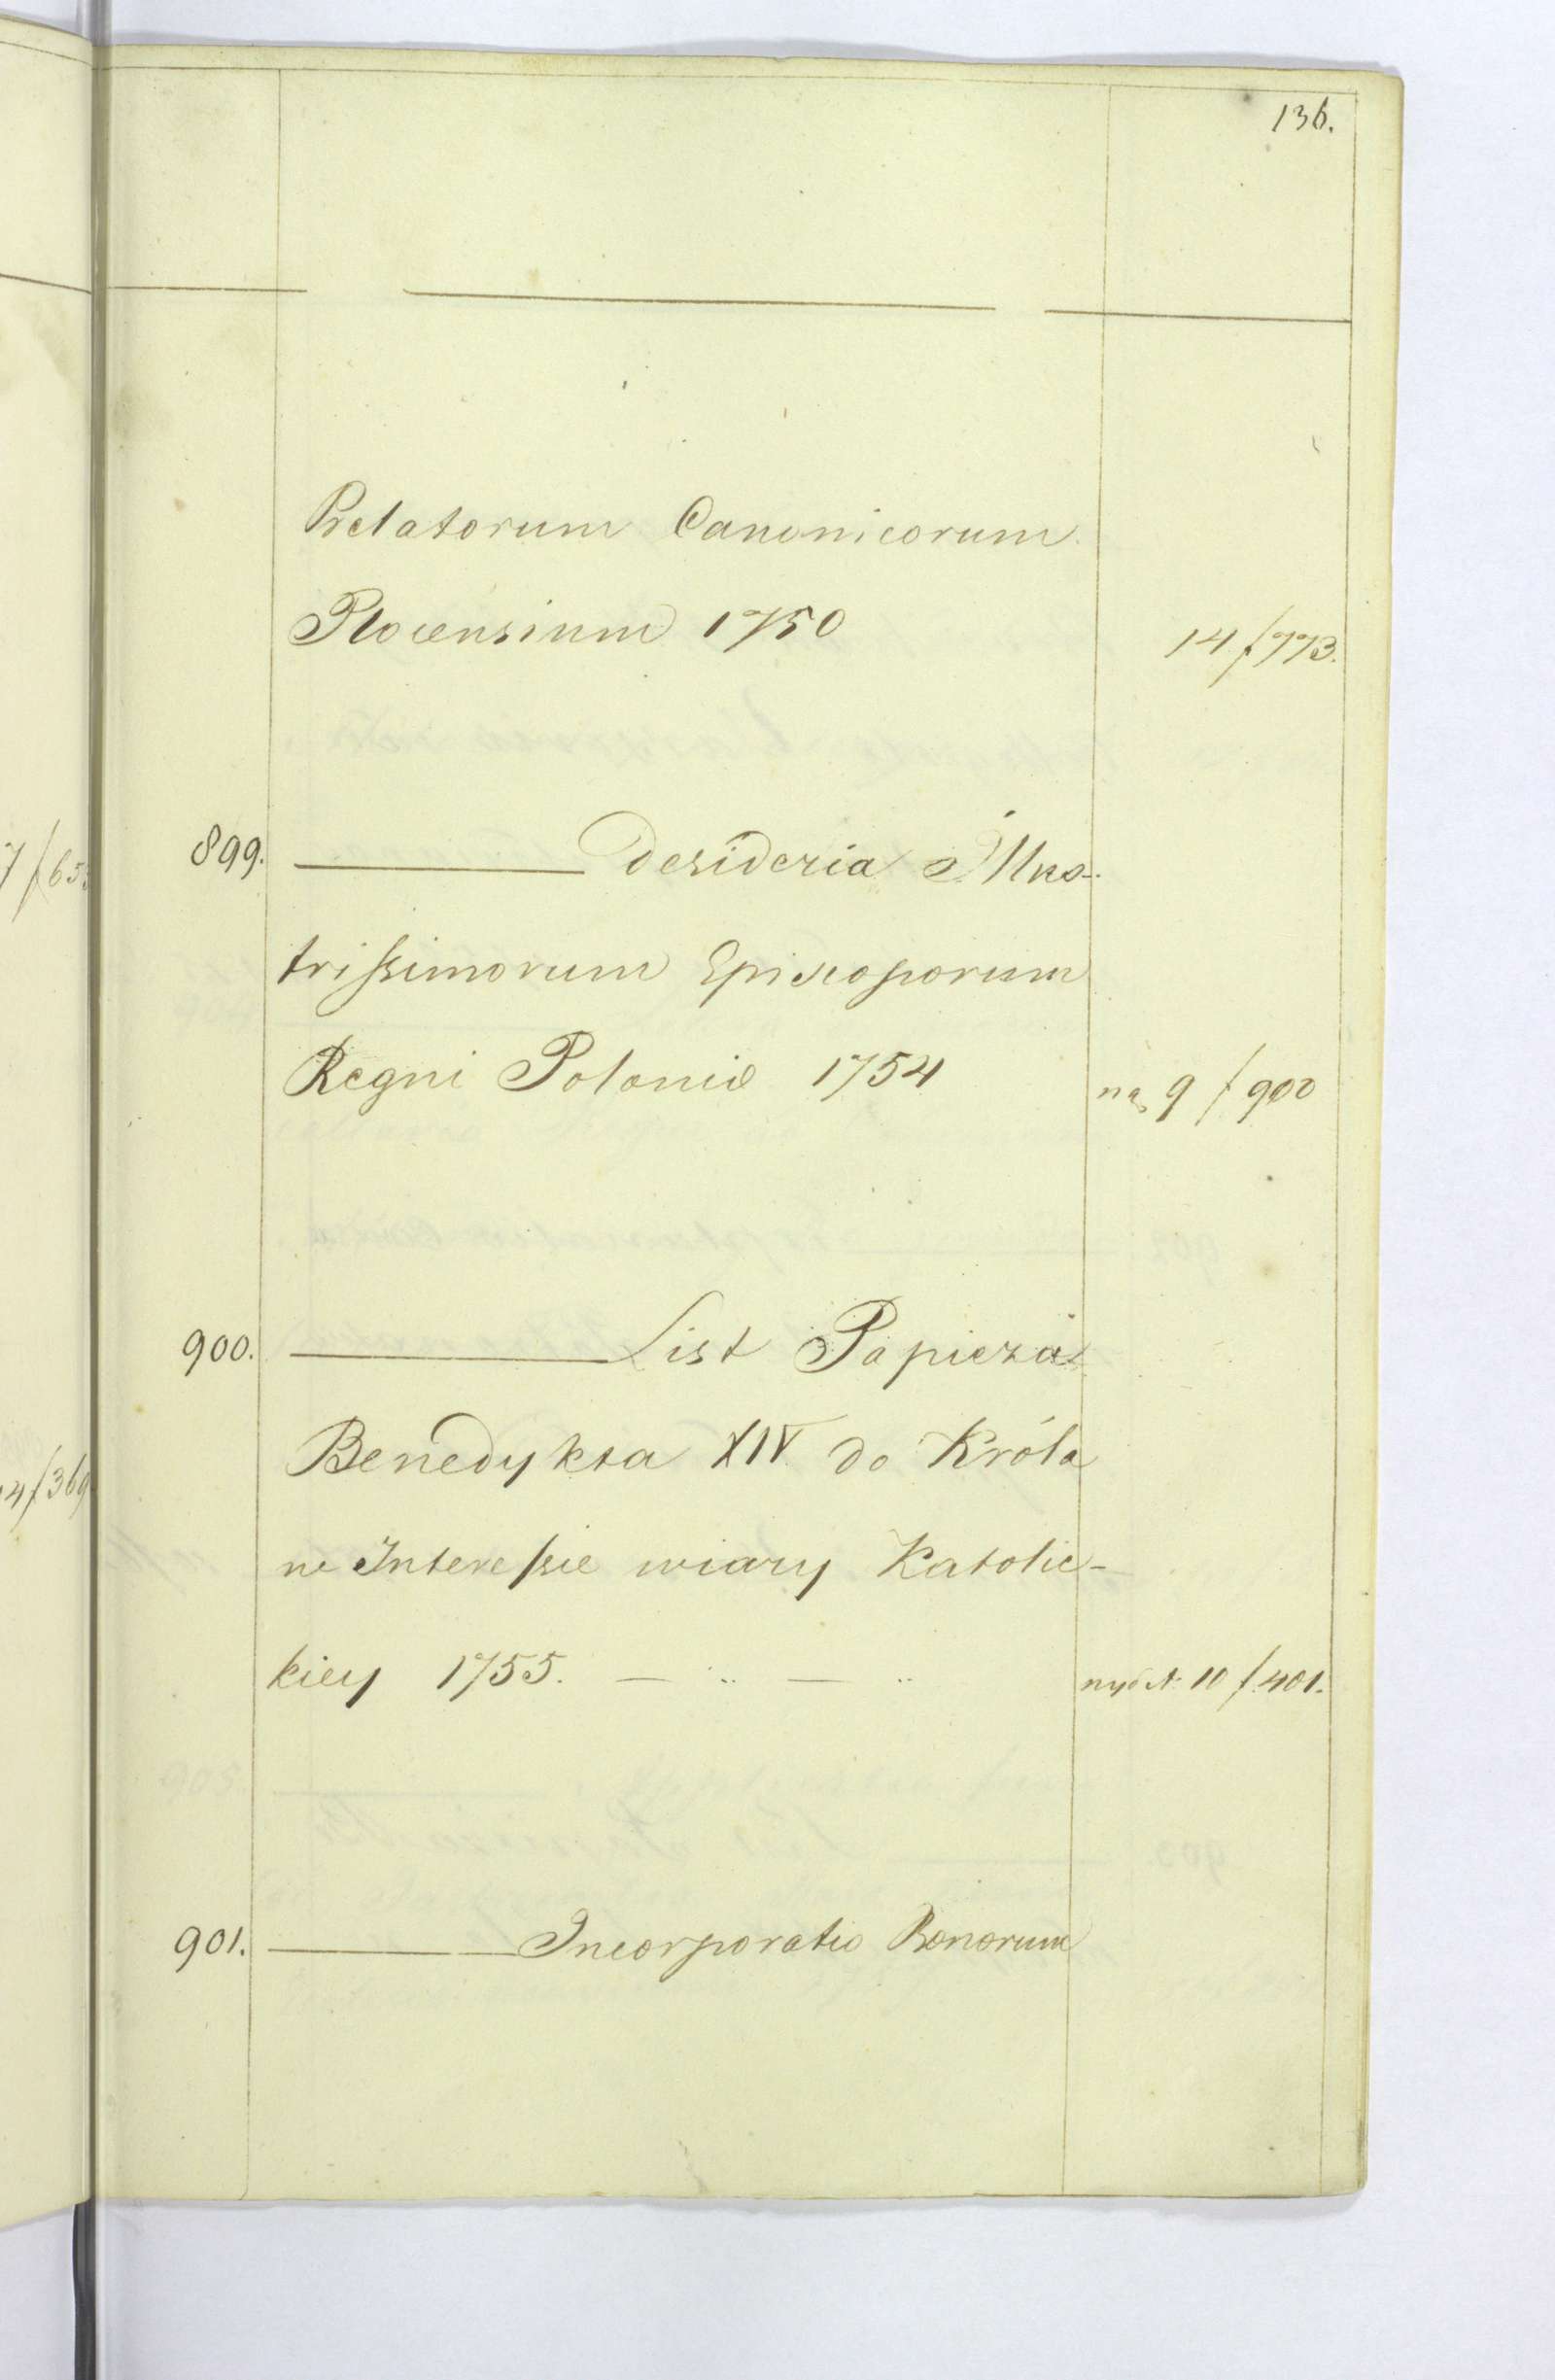 136.
Prelatorum Canonicorum
Plocensium 1750 14/773.
899. Desideria Illus-
trissimorum Episcoporum
Regni Poloniæ 1754 9/900
900. List Papieża
Benedykta XIV. do Króla
w Interessie wiary Katolic-
kiey 1755. 10/401.
901. Incorporatio Bonorum